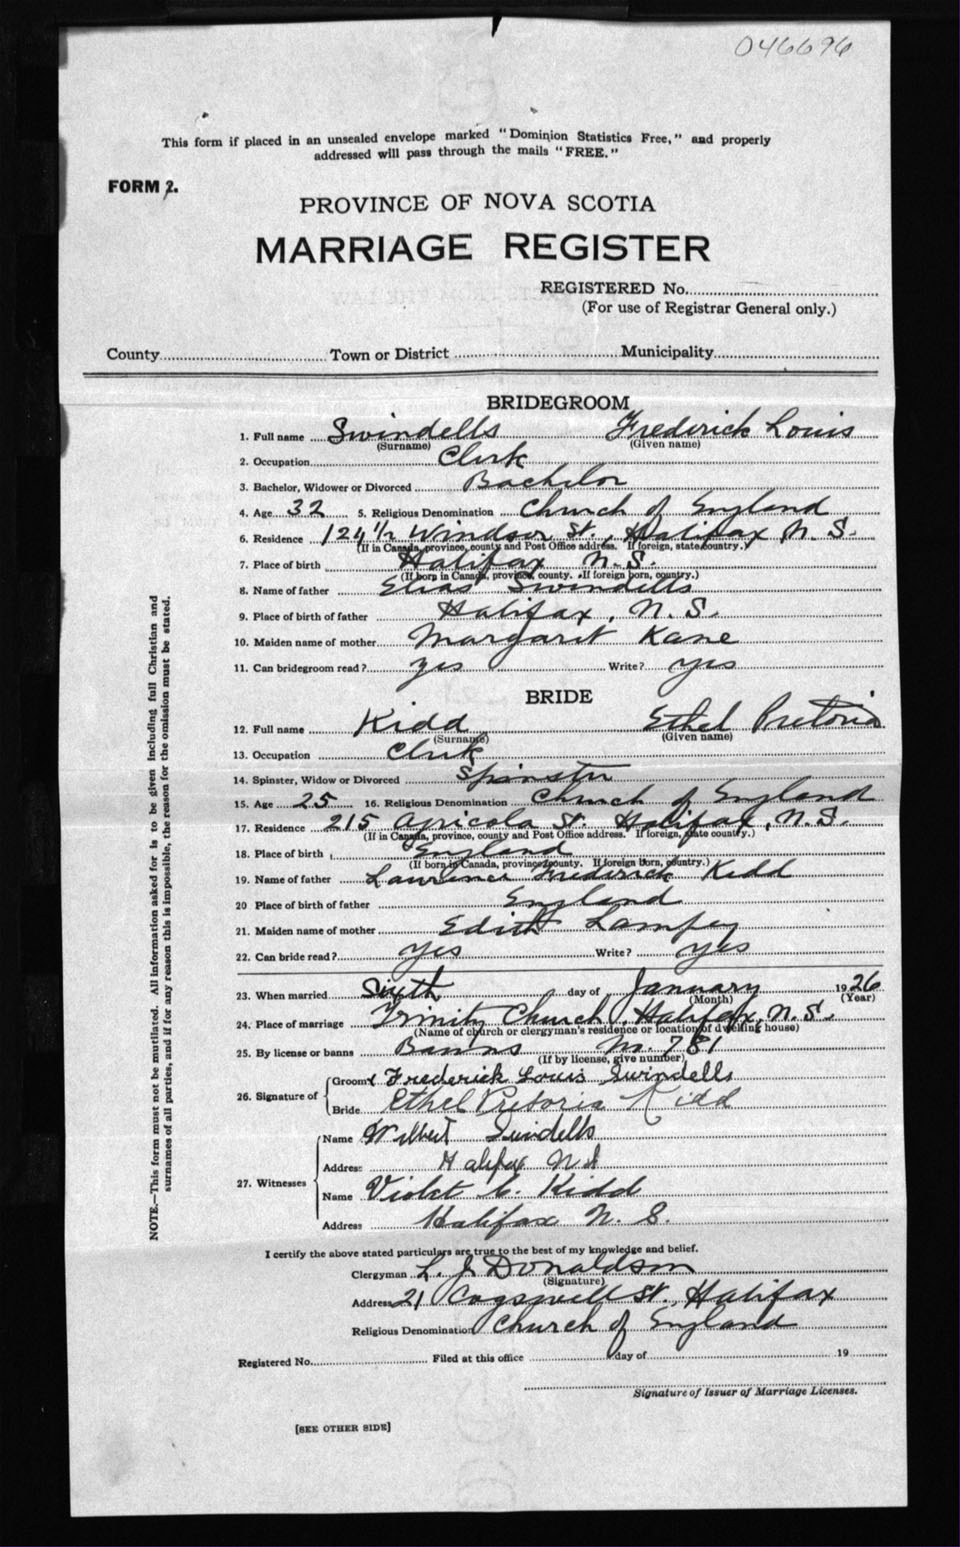 046696
This form if placed in an unsealed envelope marked "Dominion Statistics Free," and properly
addressed will pass through the mails "FREE."
FORM 2.
PROVINCE OF NOVA SCOTIA
MARRIAGE REGISTER
REGISTERED No.
(For use of Registrar General only.)
County Town or District Municipality
BRIDEGROOM
1. Full name Swindells Frederick Louis
(Surname) (Given name)
2. Occupation Clerk
3. Bachelor, Widower or Divorced Bachelor
4. Age 32 5. Religious Denomination Church of England
6. Residence 124 1/2 Windsor St., Halifax N. S.
(If in Canada, province, county and Post Office address. If foreign, state country.)
7. Place of birth Halifax N. S.
(If born in Canada, province, county. If foreign born, country.)
8. Name of father Elias Swindells
9. Place of birth of father Halifax, N. S.
10. Maiden name of mother Margaret Kane
11. Can bridegroom read? yes Write? yes
BRIDE
12. Full name Kidd Ethel Pretoria
(Surname) (Given name)
13. Occupation Clerk
14. Spinster, Widow or Divorced Spinster
15. Age 25 16. Religious Denomination Church of England
17. Residence 215 Agricola St. Halifax, N. S.
(If in Canada, province, county and Post Office address. If foreign, state country.)
18. Place of birth England
(If born in Canada, province, county. If foreign born, country.)
19. Name of father Laurence Frederick Kidd
20 Place of birth of father England
21. Maiden name of mother Edith Lampey
22. Can bride read? yes Write? yes
23. When married Sixth day of January 1926
(Month) (Year)
24. Place of marriage Trinity Church, Halifax, N. S.
(Name of church or clergyman's residence or location of dwelling house)
25. By license or banns Banns No. 781
(If by license, give number)
26. Signature of
Groom Frederick Louis Swindells
Bride Ethel Pretoria Kidd
27. Witnesses
Name Wilbert Swindells
Address Halifax N S
Name Violet C. Kidd
Address Halifax N. S.
I certify the above stated particulars are true to the best of my knowledge and belief.
Clergyman L. J. Donaldson
(Signature)
Address 21 Cogswell St., Halifax
Religious Denomination Church of England
Registered No. Filed at this office day of 19
Signature of Issuer of Marriage Licenses.
[SEE OTHER SIDE]
NOTE.—This form must not be mutilated. All information asked for is to be given including full Christian and
surnames of all parties, and if for any reason this is impossible, the reason for the omission must be stated.